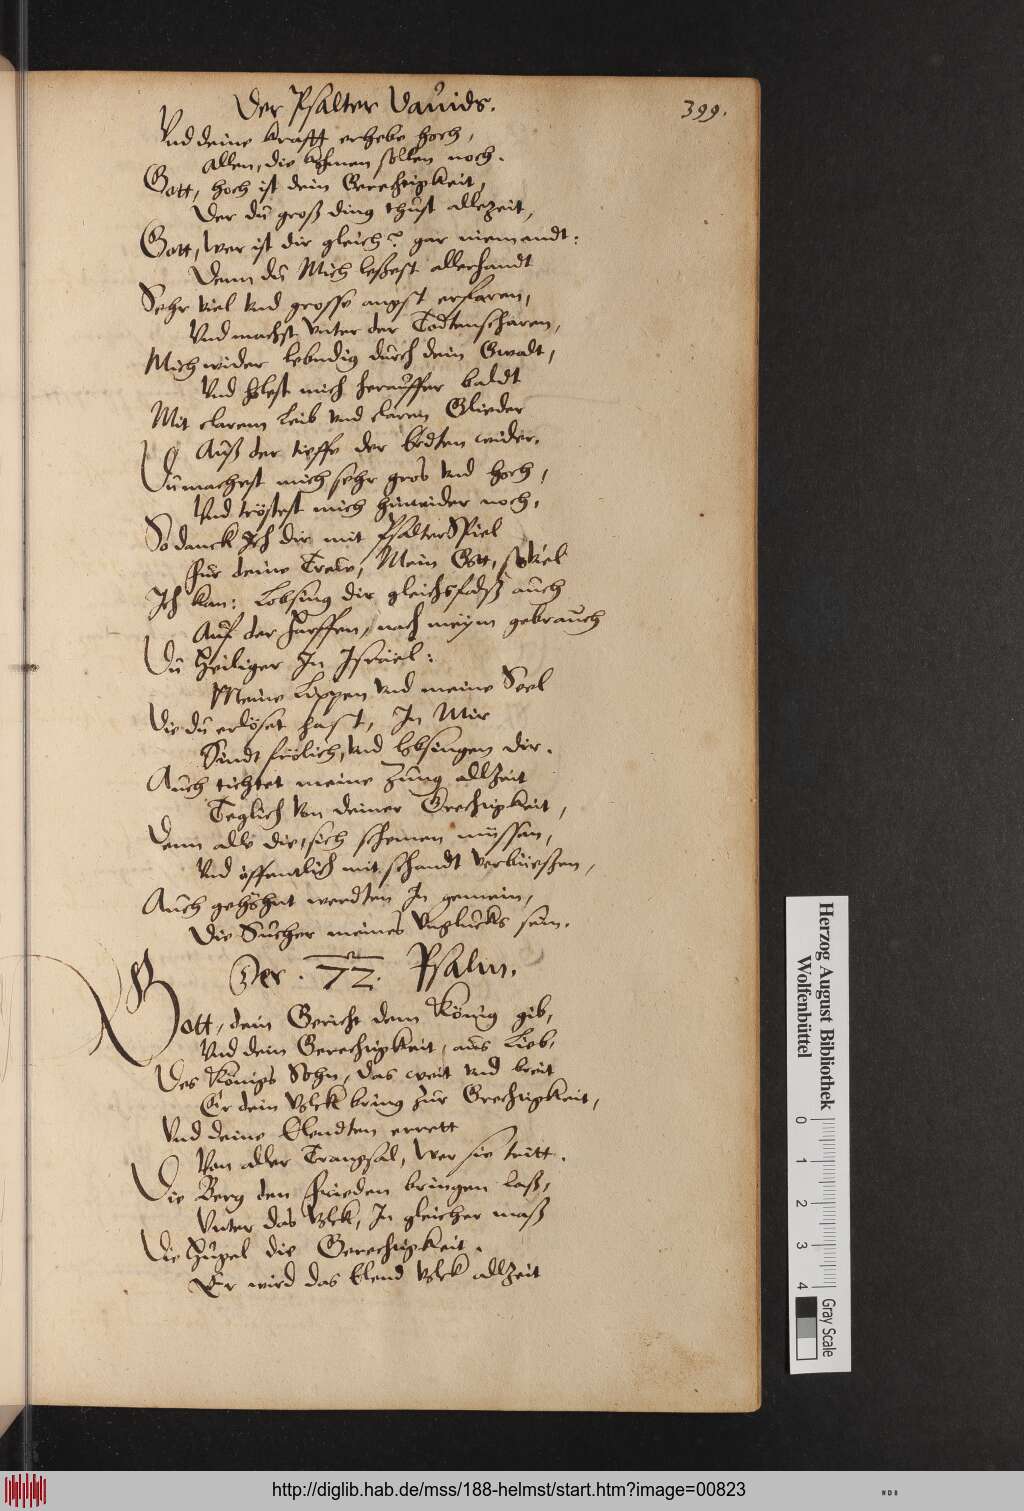 Der Psalter Dauids.
399.
Vnd deine krafft erhebe hoch,
Allen, die kohmen sollen noch.
Gott, hoch ist dein Gerechtigkeit,
Der du groß ding thust allezeit,
Gott, wer ist dir gleich? gar niemandt:
Denn du Mich leßest allerhandt
Sehr viel Vnd grosse angst erfaren,
Vnd machst Vnter der Todtenscharen,
Mich wider lebndig durch dein Gwadt,
Vnd holest mich herauffer baldt
Mit clarem Leib Vnd claren Glieder
Auß der tieffe der Erdten wider.
Du machest mich sehr gros Vnd hoch,
Vnd tröstest mich hinwider noch,
So danck Ich dir mit PsalterSpiel
Fur deine Trewe, Mein Gott, so Viel
Ich kan: Lobsing dir gleichsfalß auch
Auf der Harffen, nach meym gebrauch
Du Heiliger In Israel:
Meine Lippen Vnd meine Seel
Die du erlöset hast, In Mir
Sindt frölich, Vnd lobsingen dir.
Auch tichtet meine Zung allZeit
Teglich Von deiner Grechtigkeit,
Denn alle die, sich schemen müssen,
Vnd öffentlich mit schandt Verbüeßen,
Auch gehöhnt werdten In gemein,
Die Sucher meines Vnglucks sein.
Der .72. Psalm.
Gott, dein Gericht dem König gib,
Vnd dein Gerechtigkeit, aus Lieb,
Des Königs Sohn, das weit Vnd breit
Er dein Volck bring zur Grechtigkeit,
Vnd deine Elendten errett
Von aller Trangsal, Wer sie tritt.
Die Berg den Frieden bringen laß,
Vnter das Volck, In gleicher maß
Die Hugel die Gerechtigkeit.
Er wird das Elend Volck allZeit
Herzog August Bibliothek
Wolfenbüttel
0 1 2 3 4
Gray Scale
http://diglib.hab.de/mss/188-helmst/start.htm?image=00823